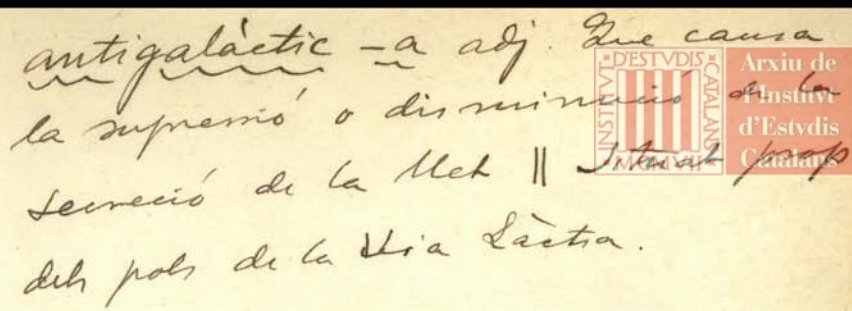 antigalàctic -a adj. Que causa
la supressió o disminució de la
secreció de la llet || Situat prop
dels pols de la Via Làctia.
INSTITVT D'ESTVDIS CATALANS
Arxiu de
l'Institvt
d'Estvdis
Catalans